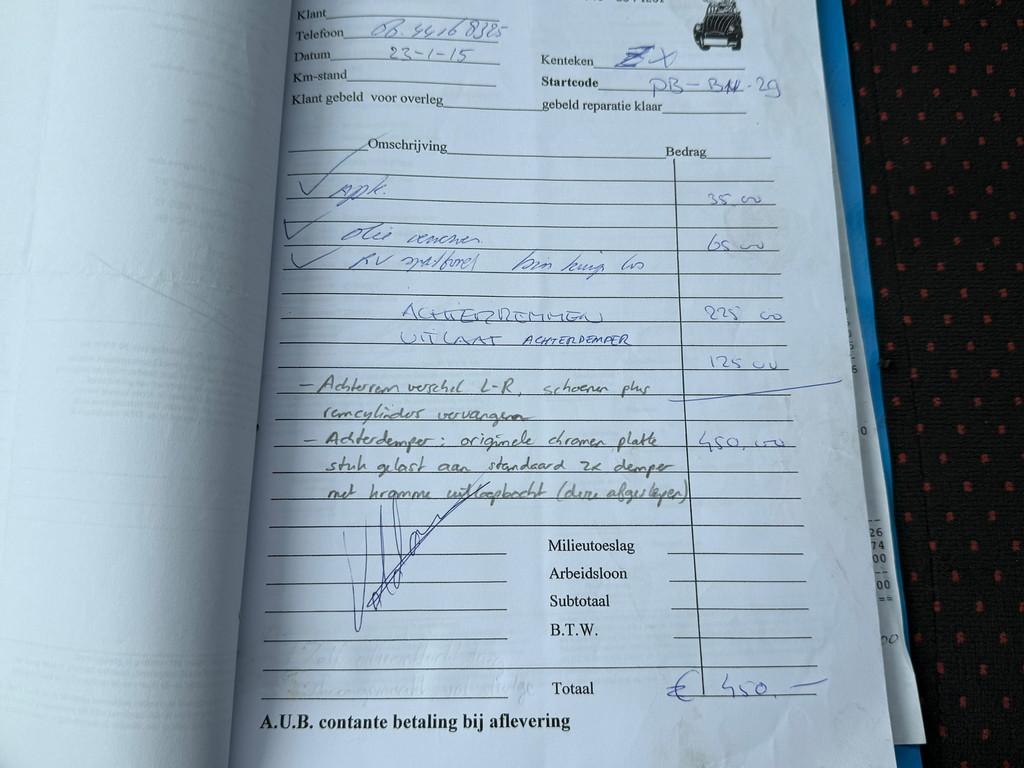 Klant
Telefoon 06. 44168325
Datum 23-1-15
Kenteken ZX
Km-stand
Startcode PB-BN-29
Klant gebeld voor overleg gebeld reparatie klaar
Omschrijving Bedrag
apk. 35,00
olie verversen 65,00
RV spatbord
ACHTERREMMEN 225 00
UITLAAT ACHTERDEMPER
125 00
- Achterrem verschil L-R, schoenen plus
remcylinders vervangen
- Achterdemper: originele chromen platte 450,00
stuk gelast aan standaard ZX demper
met kromme uitlaatbocht (deze afgeslepen)
Milieutoeslag
Arbeidsloon
Subtotaal
B.T.W.
Totaal € 450,-
A.U.B. contante betaling bij aflevering